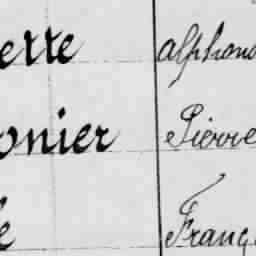 ette alphons
onier Pierre
e Franç